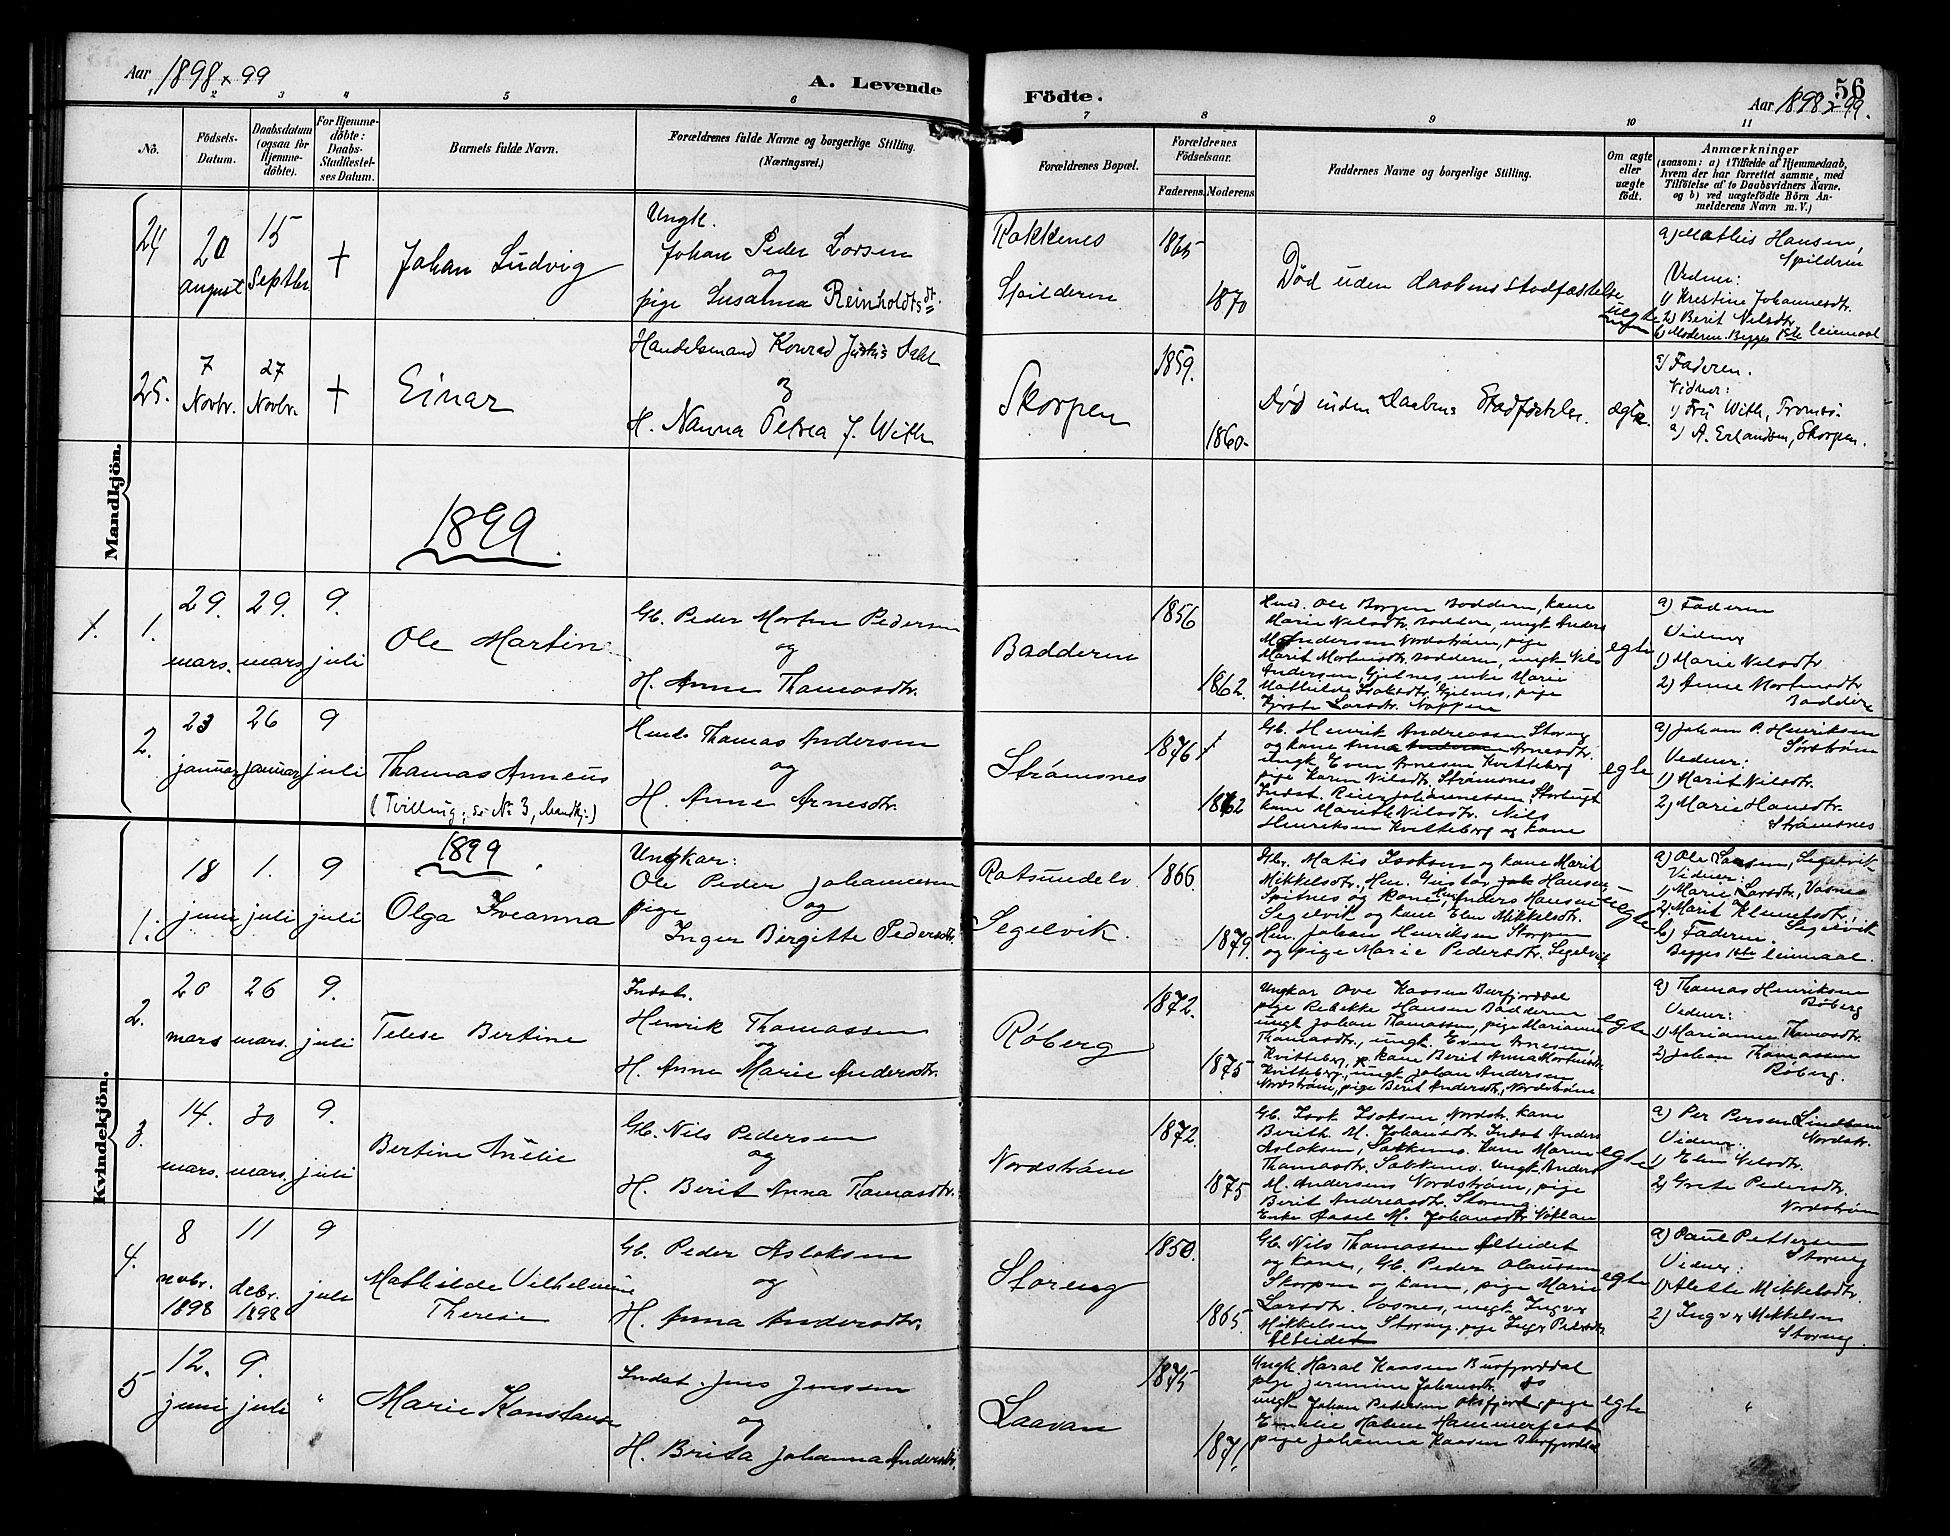 Aar 1898 x 99
A. Levende
Födte.
56
Aar 1898 x 99.
1 2 3 4 5 6 7 8 9 10 11
No.
Födsels-
Datum.
Daabsdatum
(ogsaa for
Hjemme-
döbte).
For Hjemme-
döbte:
Daabs-
Stadfæstel-
ses Datum.
Barnets fulde Navn.
Forældrenes fulde Navne og borgerlige Stilling.
(Næringsvei.)
Forældrenes Bopæl.
Forældrenes
Födselsaar.
Faderens. Moderens.
Faddernes Navne og borgerlige Stilling.
Om ægte
eller
uægte
födt.
Anmærkninger
(saasom: a) i Tilfælde af Hjemmedaab,
hvem der har forrettet samme, med
Tilföielse af to Daabsvidners Navne.
og b) ved uægtefödte Börn An-
melderens Navn m. V.)
Mandkjön.
24
20
august
15
Septbr.
+
Johan Ludvig
Ungk.
Johan Peder Larsen
og
pige Susanna Reinholdtsdt.
Rakkenes
Spilderen
1865
1870
Død uden daabens stadfæstelse
uegte
a) Mathis Hansen,
Spildren
Vidner:
1) Kristine Johannesdtr.
2) Berit Nilsdtr.
b) Moderen. Begges 1ste leiemaal
25.
7
Novbr.
27
Novbr.
+
Einar
Handelsmand Konrad Justus Dahl
og
H. Nanna Petrea J. With
Skorpen
1859.
1860
Død uden Daabens Stadfæstelse.
ægte.
a) Faderen.
Vidner:
1) Fru With, Tromsø
2) A. Erlandsen, Skorpen.
1899.
1.
1.
29.
mars.
29.
mars
9.
juli
Ole Martin
Gb. Peder Morten Pedersen
og
H. Anne Thomasdtr.
Badderen
1856
1862.
Marie Nilsdtr. Baddere, ungk Anders
M. Andersen Nordstrøm, pige
Marit Mortensdtr. Badderen, ungk. Nils
Andersen, Gjelnes, enke Marie
egte
a) Faderen
Vidner
1) Marie Nilsdtr
2) Anne Mortensdtr
Baddere
2.
23
januar
26
januar
9
juli
Thomas Anneus
(Tvilling, se No 3, Mandkj.)
Thomas Andersen
og
H. Anne Arnesdtr.
Strømsnes
1876
1862
Gb. Henrik Andreassen Storeng
og kone Anna Arnesdtr.
ungk Even Arnesen Kvitteberg
pige Karen Nilsdtr. Strømsnes
Indst. Peder Johannessen, Storbugt
kone Marith Nilsdtr. Nils
Henriksen Kvitteberg og kone
egte
a) Johan P. Henriksen
Sørstrøm
Vidner:
1) Marit Nilsdtr.
2) Marie Hansdtr.
Strømsnes
Kvindekjön.
1899
1.
18
juni
1.
juli
9
juli
Olga Iveanna
Ungkar:
Ole Peder Johannesen
og
pige
Inger Birgitte Pedersdtr.
Rotsundelv.
Segelvik.
1866.
1879.
Gbr. Matis Isaksen og kone Marit
Mikkelsdtr., Hm. Gustav Hansen
Spitnes og kone, Anders Hansen
Segelvik og kone Elen Mikkelsdtr.
Hm. Johan Henriksen Skorpen
og pige Marie Pedersdtr. Segelvik
uegte
a) Ole Larsen, Segelvik
Vidner:
1) Marie Larsdtr, Vasnes
2) Marit Klemetsdtr,
Segelvik
b) Faderen.
Begges 1ste leiemaal.
2.
20
mars
26
mars.
9.
juli
Telese Bertine
Indst.
Henrik Thomassen
og
H. Anne Marie Andersdtr.
Røberg
1872.
1875
Ungkar Ove Kaasen Burfjorddal
pige Rebekke Hansen Badderen
ungk Johan Thomassen, pige Marianne
Thomasdtr., ungk. Even Arnesen,
Kvitteberg, kone Berit Anna Mortensdtr
Kvitteberg, ungk Johan Andersen
Nordstrøm, pige Berit Andersdtr, Nordstrøm
egte
a) Thomas Henriksen
Røberg
Vidner:
1) Marianne Thomasdtr.
2) Johan Thomassen
Røberg.
3.
14.
mars.
30
mars.
9.
juli
Bertine Amelie
Gb. Nils Pedersen
og
H. Berit Anna Thomasdtr.
Nordstrøm
1872.
1875
Gb. Isak Isaksen, Nordstr. kone
Berith M. Johansdtr. Indst Anders
Aslaksen, Sakkenes. kone Maren
Thomasdtr. Sakkenes. Ungk. Anders
M. Andersens Nordstrøm, pige
Berit Andreasdtr. Storeng
Enke Aasel M. Johansdtr.
egte
a) Per Persen Lindbom
Nordstr.
Vidner:
1) Elen Nilsdtr.
2) Grete Pedersdtr.
Nordstrøm
4.
8
novbr.
1898
11
debr.
1898
9
juli
Mathilde Vilhelmine
Therese
Gb. Peder Aslaksen
og
H. Anna Andersdtr.
Storeng
1850.
1865.
Gb. Nils Thomassen Alteidet
og kone, Gb. Peder Olaussen
Skorpen og kone, pige Marie
Larsdtr. Vasnes, ungk. Ingvar
Mikkelsen Storeng, pige Inger Pedersdtr.
Alteidet
egte
a) Paul Pettersen
Storeng
Vidner:
1) Alette Mikkelsdtr.
2) Ingvar Mikkelsen
Storeng.
5
12.
juni
9.
juli
"
Marie Konstanse
Indst. Jens Jenssen
og
H. Brita Johanna Andersdtr.
Laavan
1875
1871.
Ungk. Haral Kaasen Burfjorddal
pige Jeremine Johansdtr. do
ungk Johan Pedersen Oksfjord, pige
Emelie Hammerfest
pige Johanna Kaasen Burfjorddal
egte
"